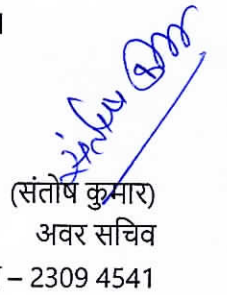 (संतोष कुमार)
अवर सचिव
– 2309 4541